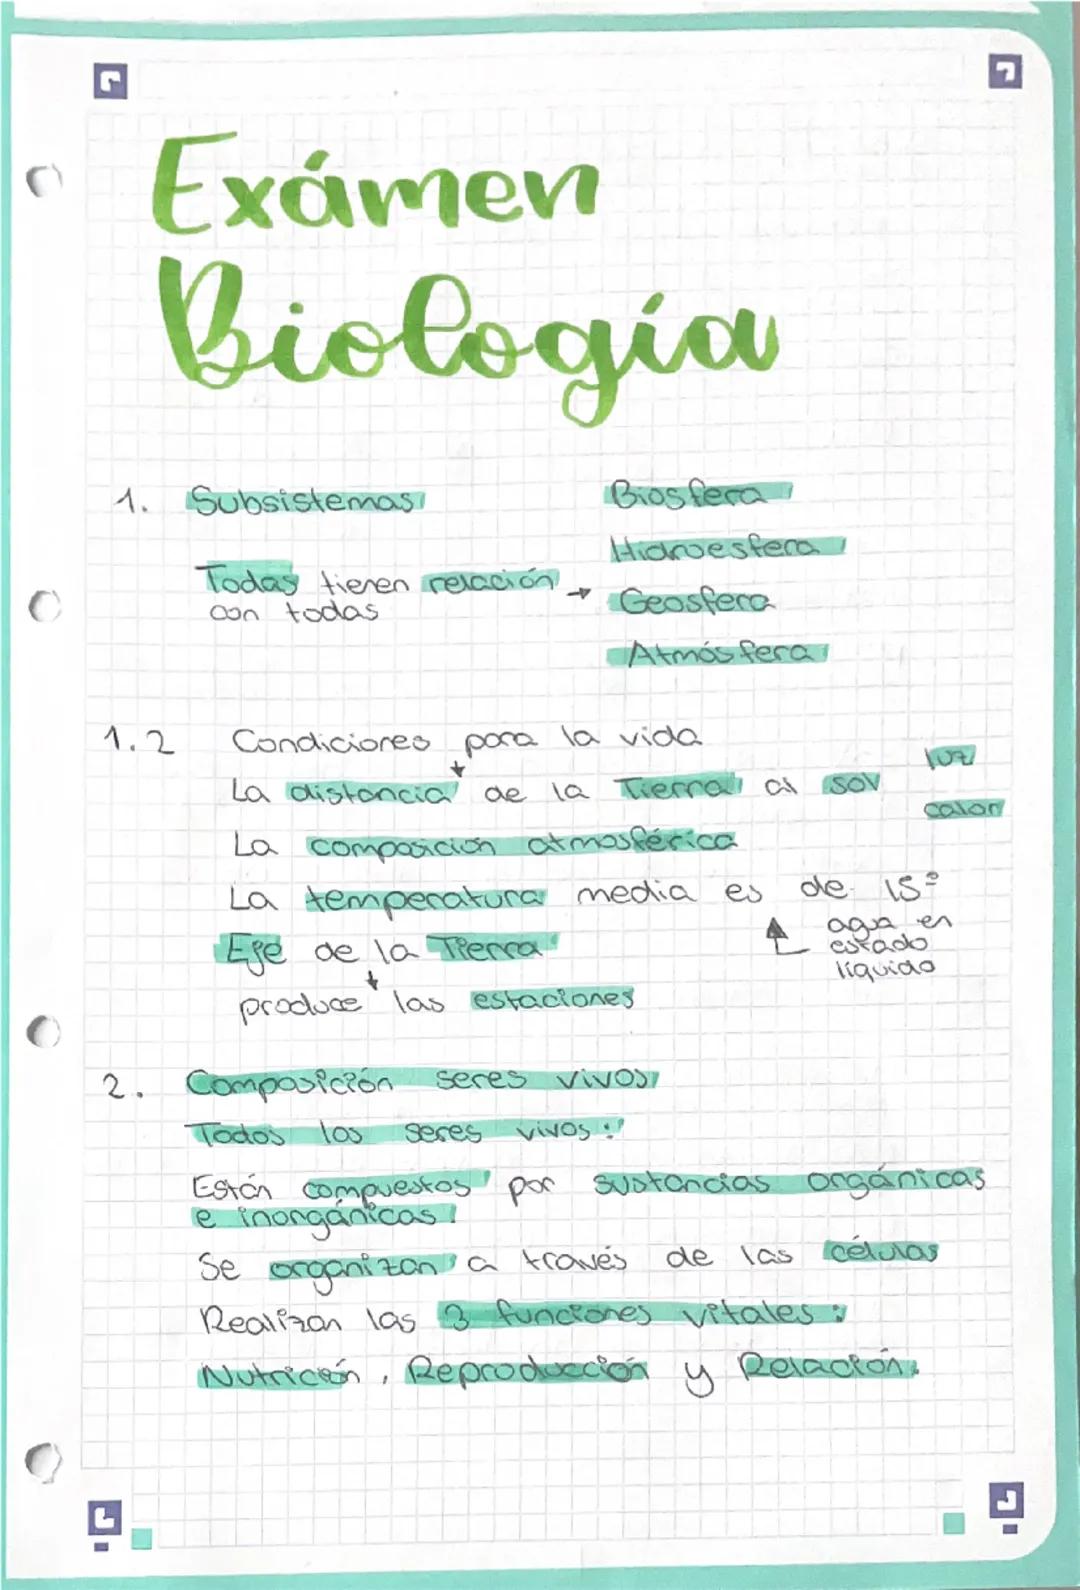 Exámen
Biología
1. Subsistemas
Biosfera
Hidroesfera
Todas tienen relación →
con todas
Geosfera
Atmósfera
1.2 Condiciones para la vida
La distancia de la Tierra al sol
luz
calor
La composición atmosférica
La temperatura media es de 15º
agua en
estado
líquido
Eje de la Tierra
produce las estaciones
2. Composición seres vivos
Todos los seres vivos:
Están compuestos por sustancias orgánicas
e inorgánicas.
Se organizan a través de las células
Realizan las 3 funciones vitales:
Nutrición, Reproducción y Relación.